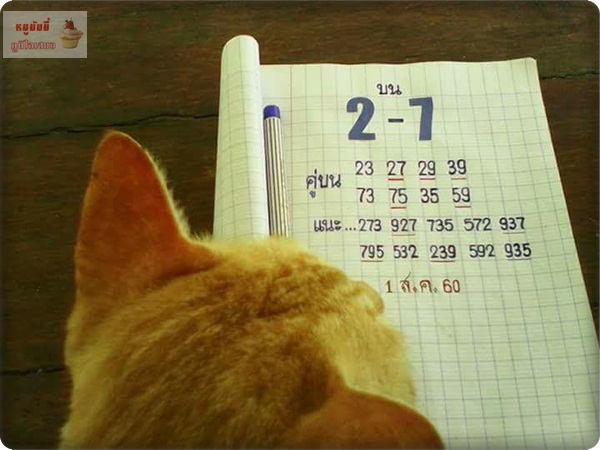 หมูมัมมี่
ภูมิโอเสถบ
บน
2 - 7
คู่บน
23 27 29 39
73 75 35 59
แนะ...273 927 735 572 937
795 532 239 592 935
1 ส.ค. 60